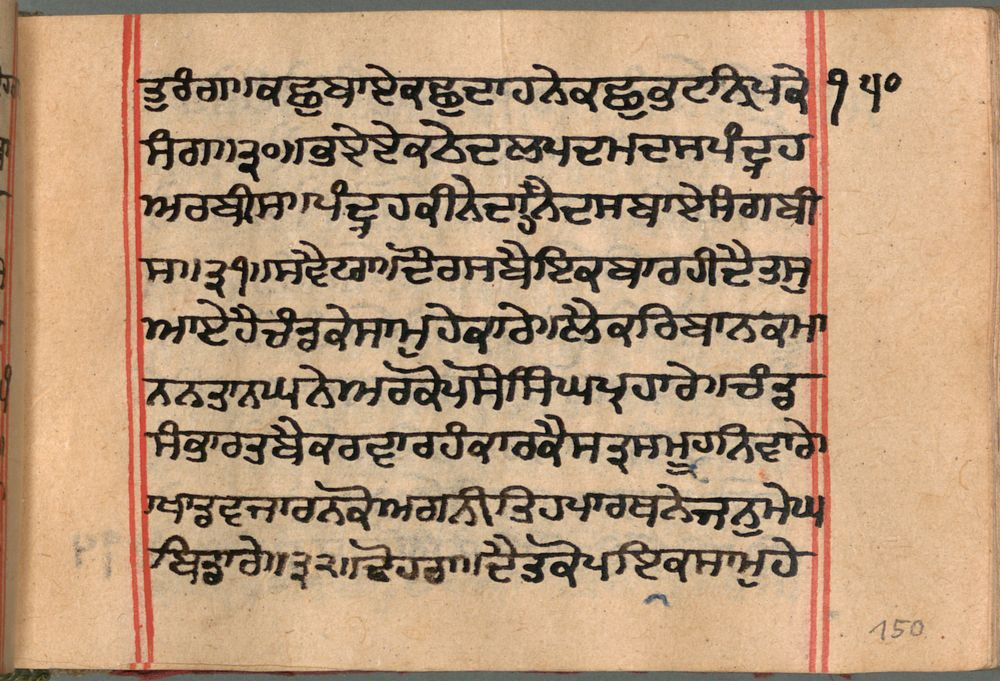 ਤੁਰੰਗ॥ਕਛੁਬਾਏਕਛੁਦਾਹਨੇਕਛੁਕੁਟਾਨ੍ਰਿਪਕੇ ੧੫੦
ਸੰਗ॥੩੦॥ਕੁਏਏਕਠੇਦਲਪਦਮਦਸਪੰਦ੍ਰਹ
ਅਰਬੀਸ॥ਪੰਦ੍ਰਹਕੀਨੇਦਾਹਨੈਦਸਬਾਏਸੰਗਬੀ
ਸ॥੩੧॥ਸਵੈਯਾ॥ਦੌਰਸਬੈਇਕਬਾਰਹੀਦੈਤਸੁ
ਆਏਹੈਚੰਡਕੇਸਾਮੁਹੇਕਾਰੇ॥ਲੈਕਰਿਬਾਨਕਮਾ
ਨਨਤਾਨਘਨੇਅਰਕੋਪਸੌਸਿੰਘਪ੍ਰਹਾਰੇ॥ਚੰਡ
ਸੰਭਾਰਤਬੈਕਰਵਾਰਹੰਕਾਰਕੈਸਤ੍ਰਸਮੂਹਨਿਵਾਰੇ
॥ਖਾਡਵਜਾਰਨਕੋਅਗਨੀਤਿਹਪਾਰਥਨੇਜਨੁਮੇਘ
ਬਿਡਾਰੇ॥੩੨॥ਦੋਹਰਾ॥ਦੈਤਕੋਪਇਕਸਾਮੁਹੇ
150